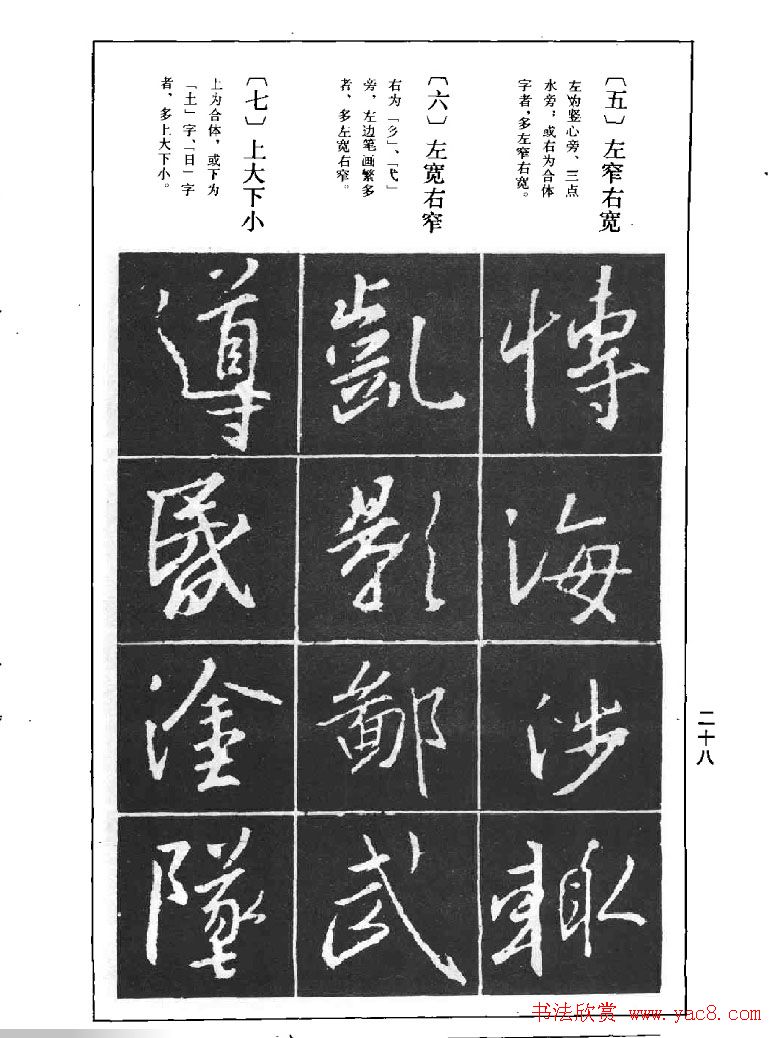 〔五〕左窄右宽
左为竖心旁、三点
水旁；或右为合体
字者，多左窄右宽。
〔六〕左宽右窄
右为「彡」、「弋」
旁，左边笔画繁多
者，多左宽右窄。
〔七〕上大下小
上为合体，或下为
「土」字、「日」字
者，多上大下小。
海
涉
凱
影
鄙
武
導
塗
墜
二十八
书法欣赏 www.yac8.com